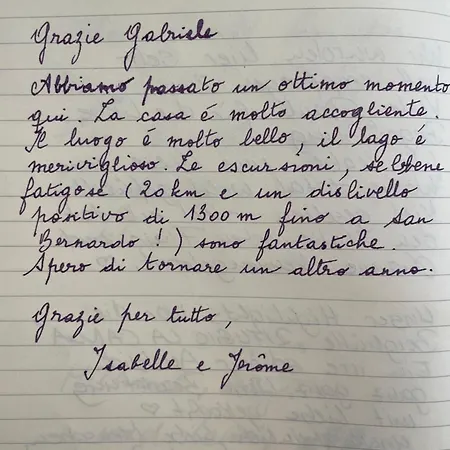 Grazie Gabriele
Abbiamo passato un ottimo momento
qui. La casa é molto accogliente.
Il luogo é molto bello, il lago é
meriviglioso. Le escursioni, sebbene
fatigose (20 km e un dislivello
positivo di 1300 m fino a San
Bernardo !) sono fantastiche.
Spero di tornare un altro anno.
Grazie per tutto,
Isabelle e Jerôme